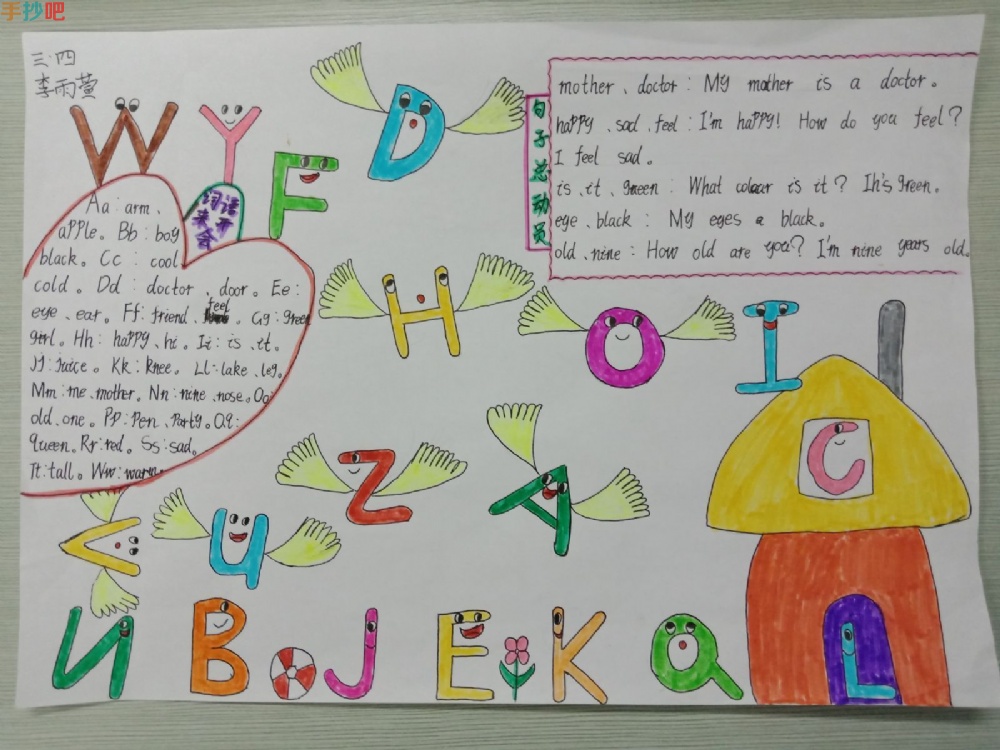 手抄吧
三.四
李雨萱
W Y F D
词语
来开
会
Aa:arm、
apple。Bb:boy
black。Cc:cool
cold。Dd:doctor、door。Ee:
eye、ear。Ff:friend、feel。Gg:green
girl。Hh:happy、hi。Ii:is、it。
Jj:juice。Kk:knee。Ll:lake、leg。
Mm:me、mother。Nn:nine、nose。Oo:
old、one。Pp:pen、party。Qq:
queen。Rr:red。Ss:sad。
Tt:tall。Ww:warm
句子总动员
mother、doctor:My mother is a doctor。
happy、sad、feel:I'm happy! How do you feel?
I feel sad。
is、it、green:What colour is it? Ih's green。
eye、black:My eyes a black。
old、nine:How old are you? I'm nine years old。
H O I
C
Z A
V U
N B J E K Q L